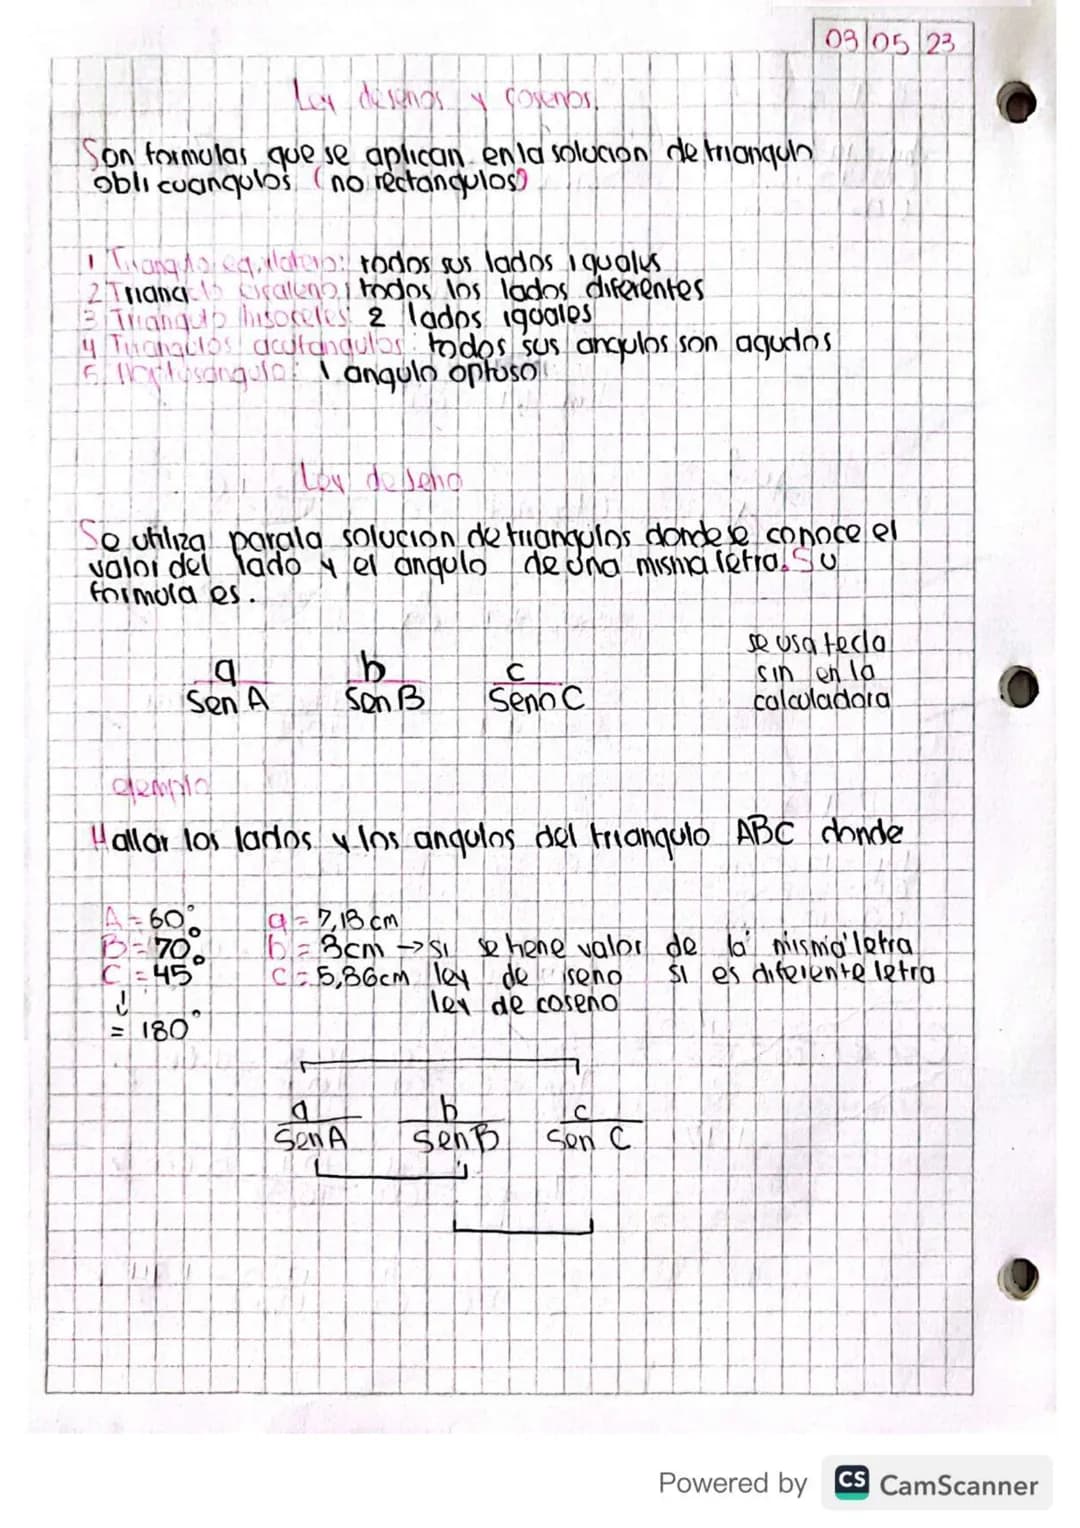 09 05 23
Ley de senos y cosenos.
Son formulas que se aplican en la solucion de triangulo
oblicuangulos (no rectangulos)
1 Triangulo equilatero: todos sus lados iguales
2 Triangulo escaleno: todos los lados diferentes
3 Triangulo hisoceles: 2 lados iguales
4 Triangulos acutangulos: todos sus angulos son agudos
5. 1 angulo optuso
Ley de seno
Se utiliza para la solucion de triangulos donde se conoce el
valor del lado y el angulo de una misma letra. Su
formula es.
a b c
Sen A Sen B Seno C
se usa tecla
sin en la
calculadora
ejemplo
Hallar los lados y los angulos del triangulo ABC donde
A = 60° a = 7,18 cm
B = 70° b = 8cm → si se tiene valor de la misma letra
C = 45° c = 5,86cm ley de seno si es diferente letra
ley de coseno
= 180°
a b c
Sen A Sen B Sen C
Powered by CS CamScanner